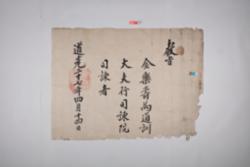 敎旨
金樂秀爲通訓
大夫行司諫院
司諫者
道光二十七年四月十四日